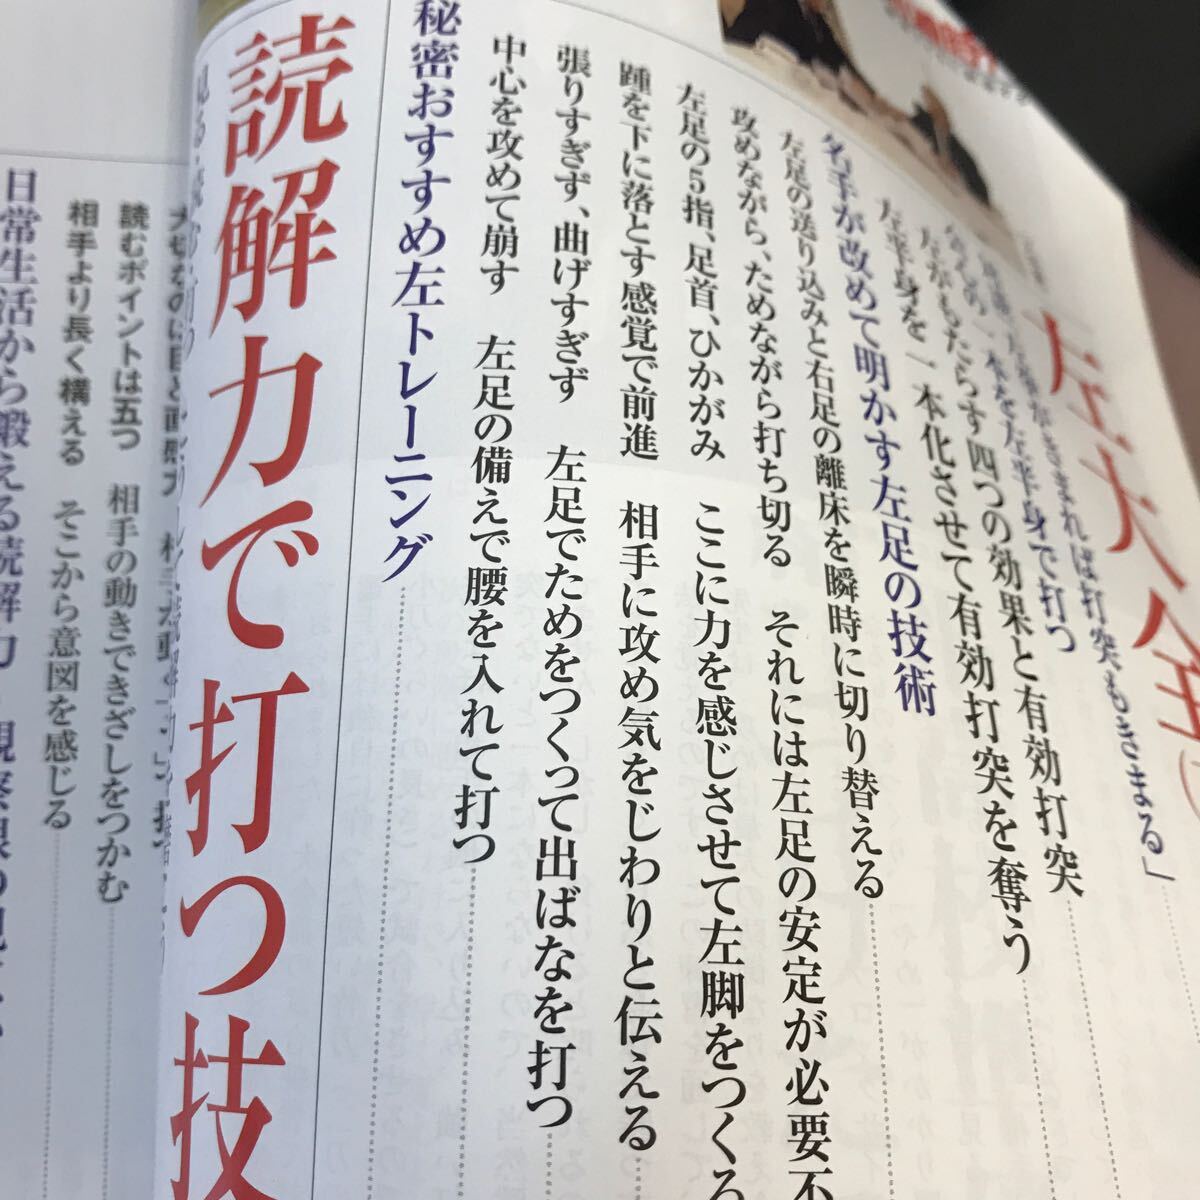 左大全
左がもたらす四つの効果と有効打突
左半身を一本化させて有効打突を奪う
名手が改めて明かす左足の技術
左足の送り込みと右足の離床を瞬時に切り替える
攻めながら、ためながら打ち切る　それには左足の安定が必要不
左足の5指、足首、ひかがみ　ここに力を感じさせて左脚をつくる
踵を下に落とす感覚で前進　相手に攻め気をじわりと伝える
張りすぎず、曲げすぎず　左足でためをつくって出ばなを打つ
中心を攻めて崩す　左足の備えで腰を入れて打つ
秘密おすすめ左トレーニング
読解力で打つ技
読むポイントは五つ　相手の動きできざしをつかむ
相手より長く構える　そこから意図を感じる
日常生活から鍛える読解力